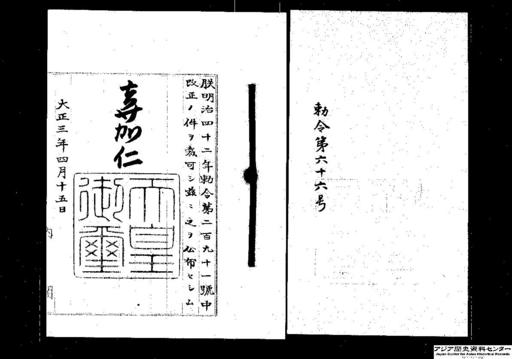 勅令第六十六号
朕明治四十二年勅令第二百九十一號中
改正ノ件ヲ裁可シ茲ニ之ヲ公布セシム
嘉仁
天皇御璽
大正三年四月十五日
内閣
アジア歴史資料センター
Japan Center for Asian Historical Records